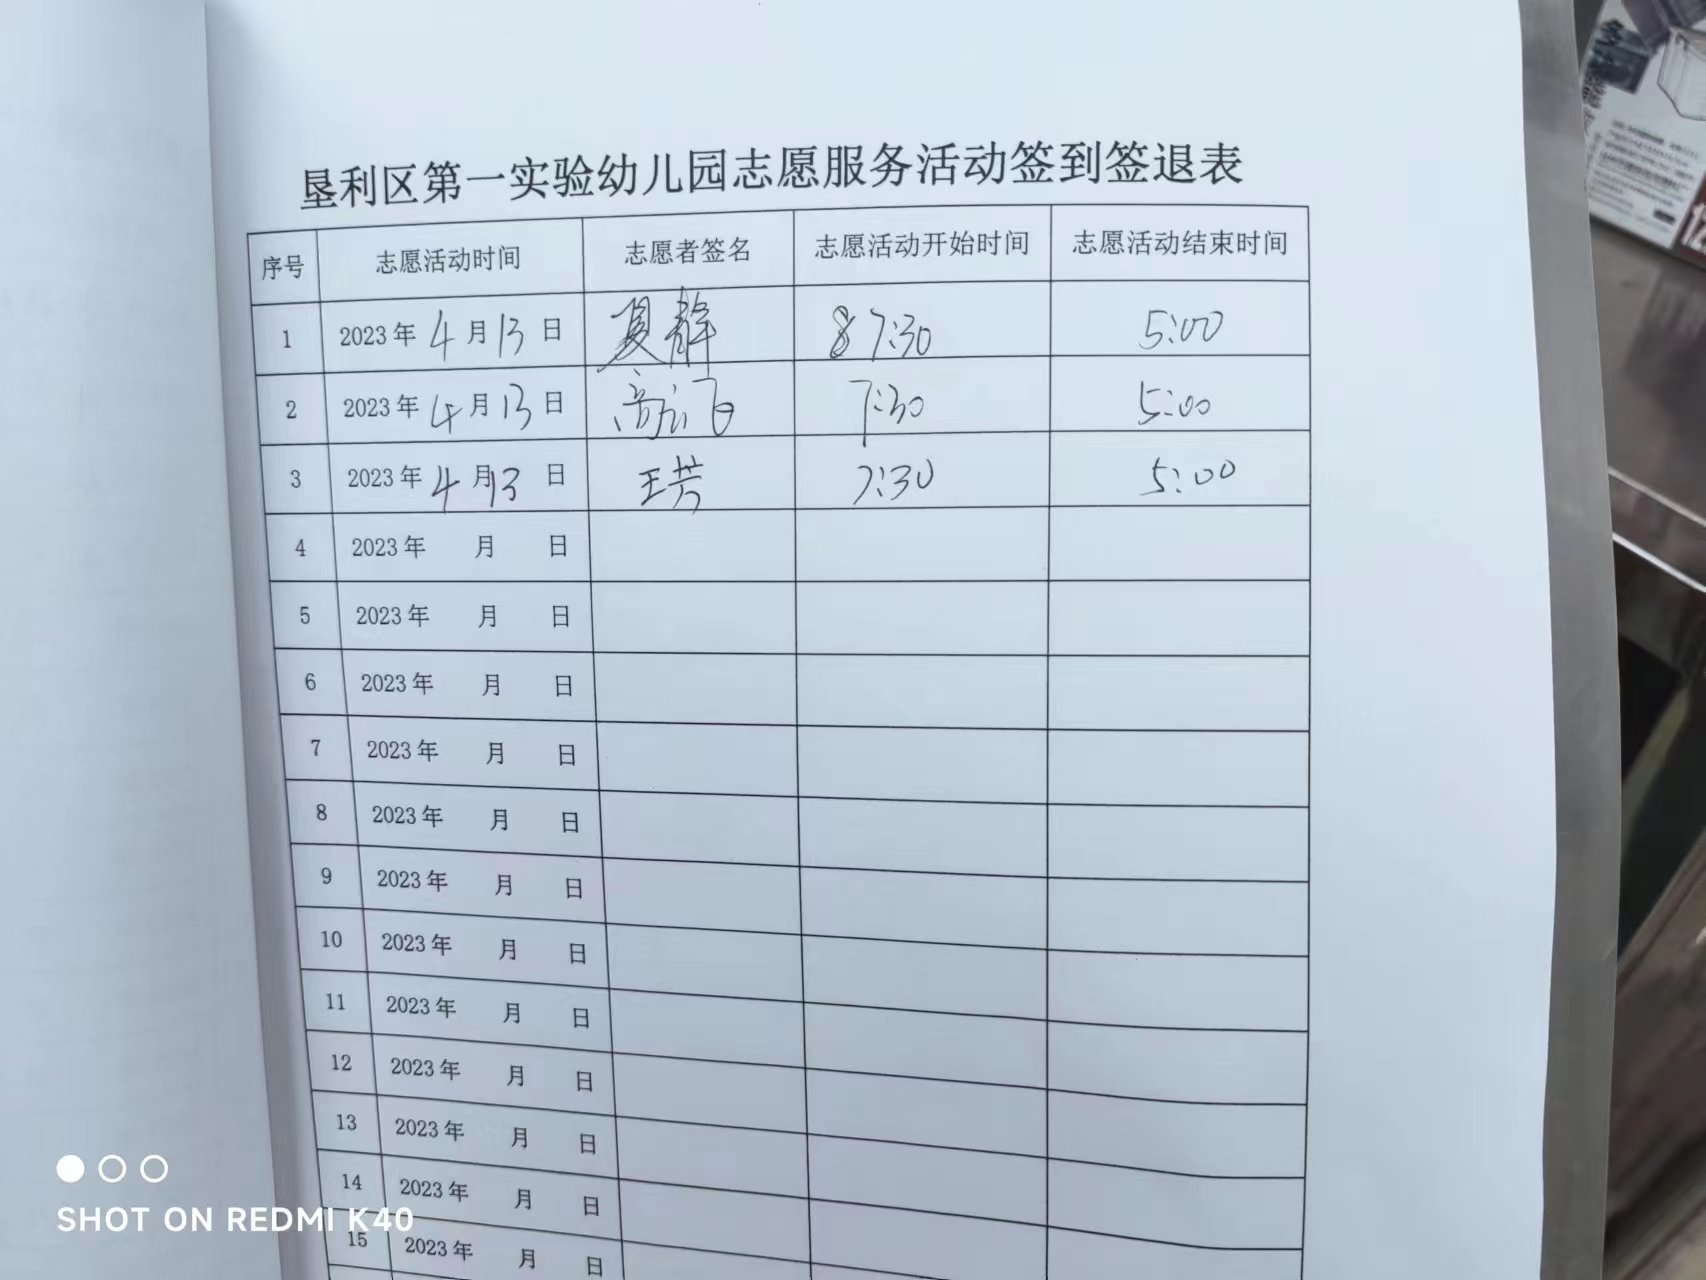 垦利区第一实验幼儿园志愿服务活动签到签退表
序号 志愿活动时间 志愿者签名 志愿活动开始时间 志愿活动结束时间
1 2023年4月13日 夏静 8 7:30 5:00
2 2023年4月13日 7:30 5:00
3 2023年4月13日 王芳 7:30 5:00
4 2023年 月 日
5 2023年 月 日
6 2023年 月 日
7 2023年 月 日
8 2023年 月 日
9 2023年 月 日
10 2023年 月 日
11 2023年 月 日
12 2023年 月 日
13 2023年 月 日
14 2023年 月 日
15 2023年 月 日
SHOT ON REDMI K40